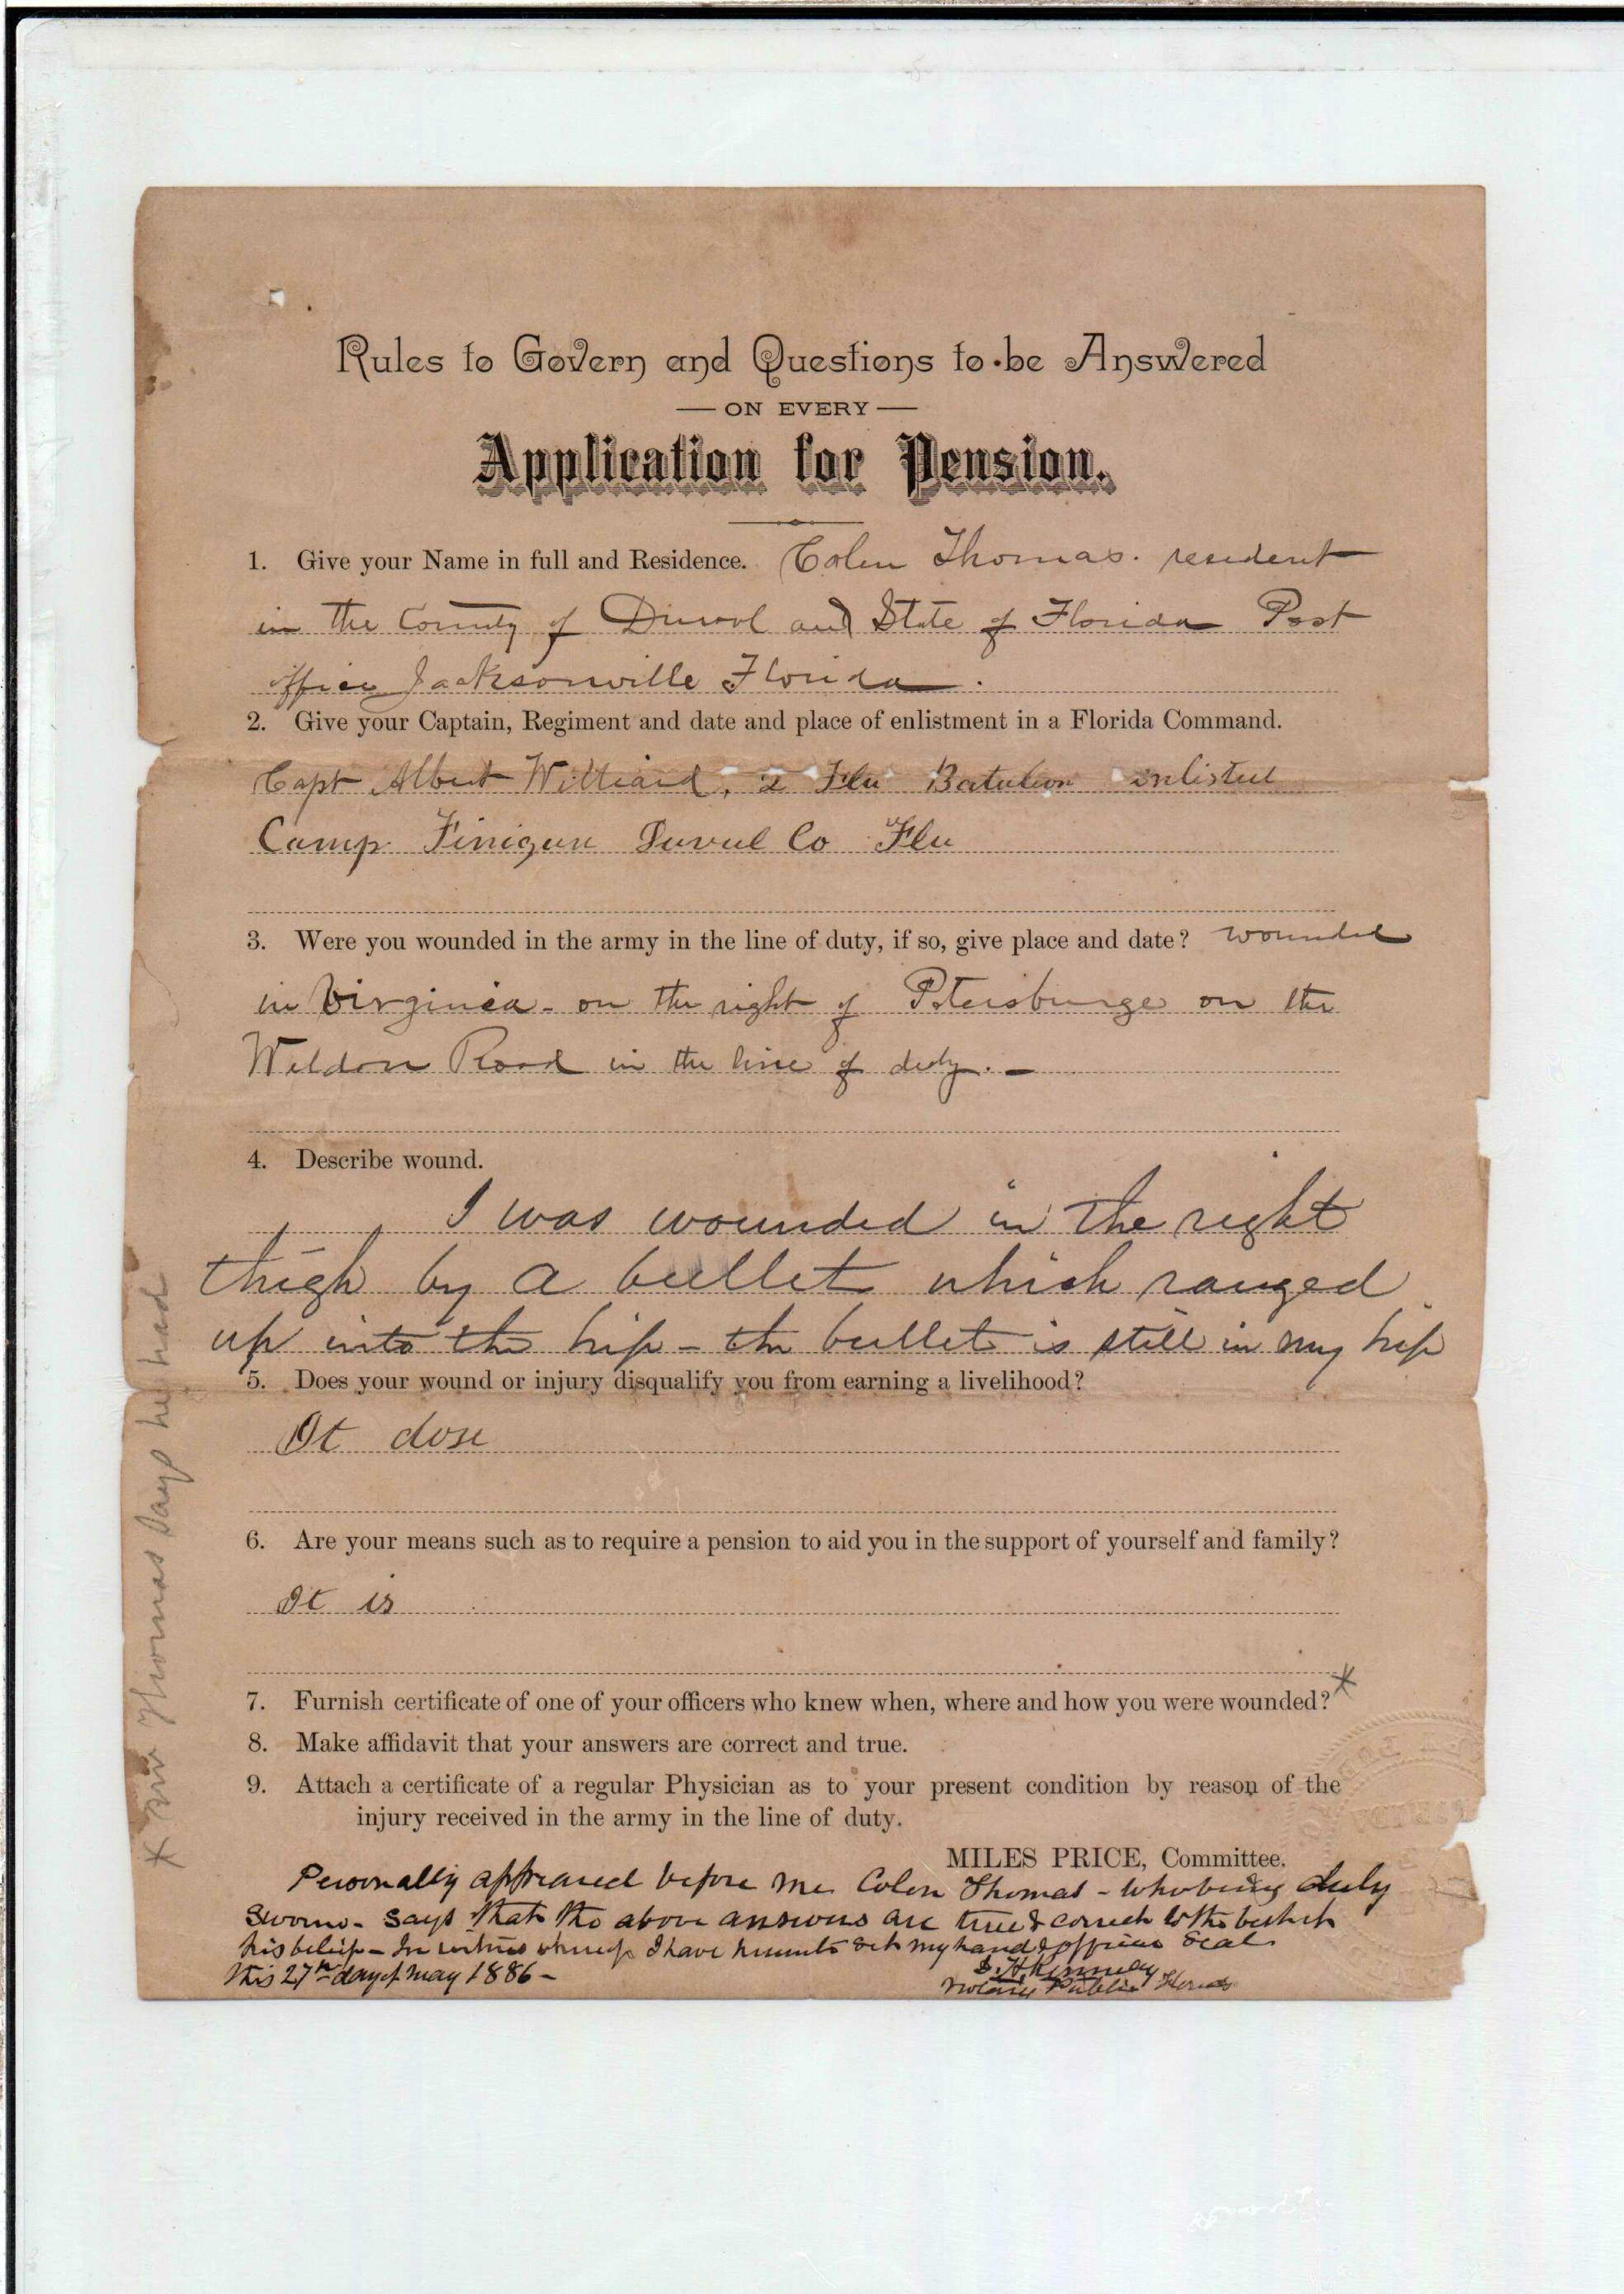 Rules to Govern and Questions to be Answered
ON EVERY
Application for Pension.
1. Give your Name in full and Residence. Colen Thomas. resident
in the County of Duval and State of Florida Post
office Jacksonville Florida.
2. Give your Captain, Regiment and date and place of enlistment in a Florida Command.
Capt Albert Williard, 2 Fla Batalion inlisted
Camp Finigan Duval Co Fla
3. Were you wounded in the army in the line of duty, if so, give place and date? wounded
in Virginia - on the right of Petersburge on the
Weldon Road in the line of duty. -
4. Describe wound.
I was wounded in the right
thigh by a bullet which ranged
up into the hip - the bullet is still in my hip
5. Does your wound or injury disqualify you from earning a livelihood?
It dose
6. Are your means such as to require a pension to aid you in the support of yourself and family?
It is
7. Furnish certificate of one of your officers who knew when, where and how you were wounded? *
8. Make affidavit that your answers are correct and true.
9. Attach a certificate of a regular Physician as to your present condition by reason of the
injury received in the army in the line of duty.
MILES PRICE, Committee.
Personally appeared before me Colen Thomas - who being duly
sworn - says that the above answers are true & correct to the best of
his belief - In witness whereof I have hereunto set my hand & office Seal
this 27th day of May 1886 -
Notary Public
* Mr Thomas says he had